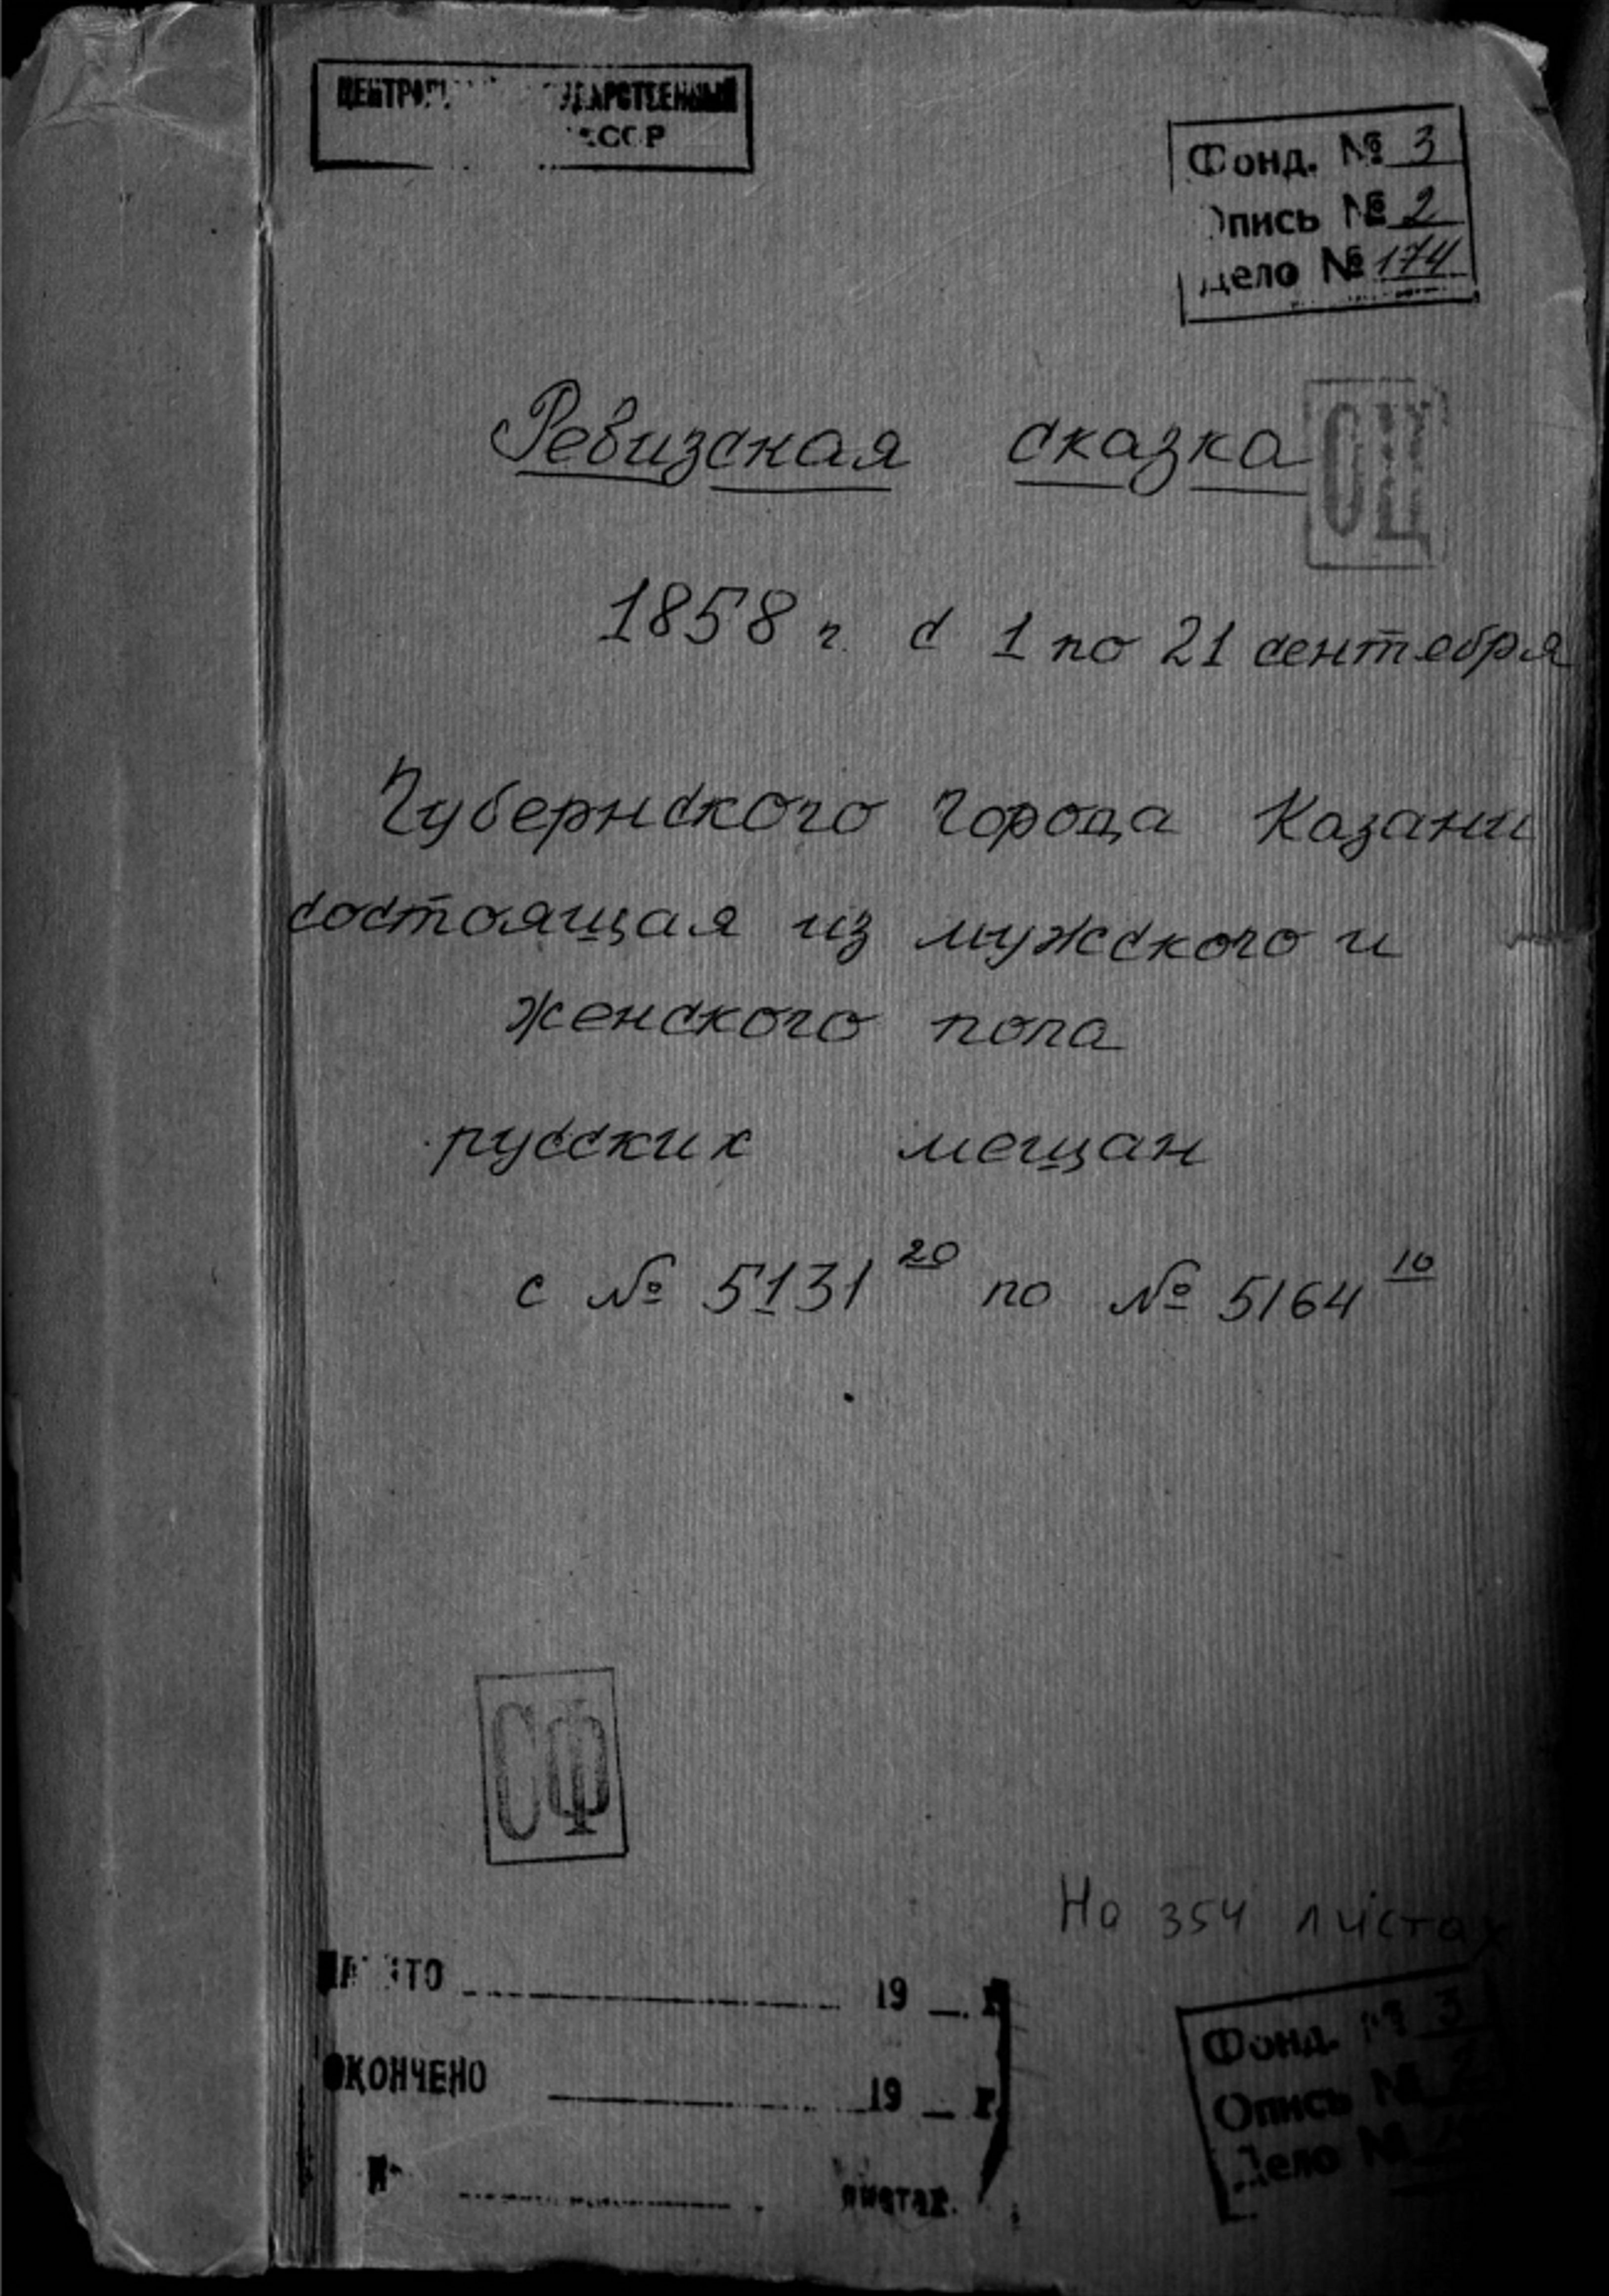 Фонд. № 3
Опись № 2
Дело № 174
Ревизская сказка
ОЦ
1858 г. с 1 по 21 сентебря
Губернского города Казани
состоящая из мужского и
женского пола
русских мещан
с № 5131 20 по № 5164 10
СФ
На 354 листах
19 г.
ОКОНЧЕНО 19 г.
листах.
Фонд. № 3
Опись №
Дело №